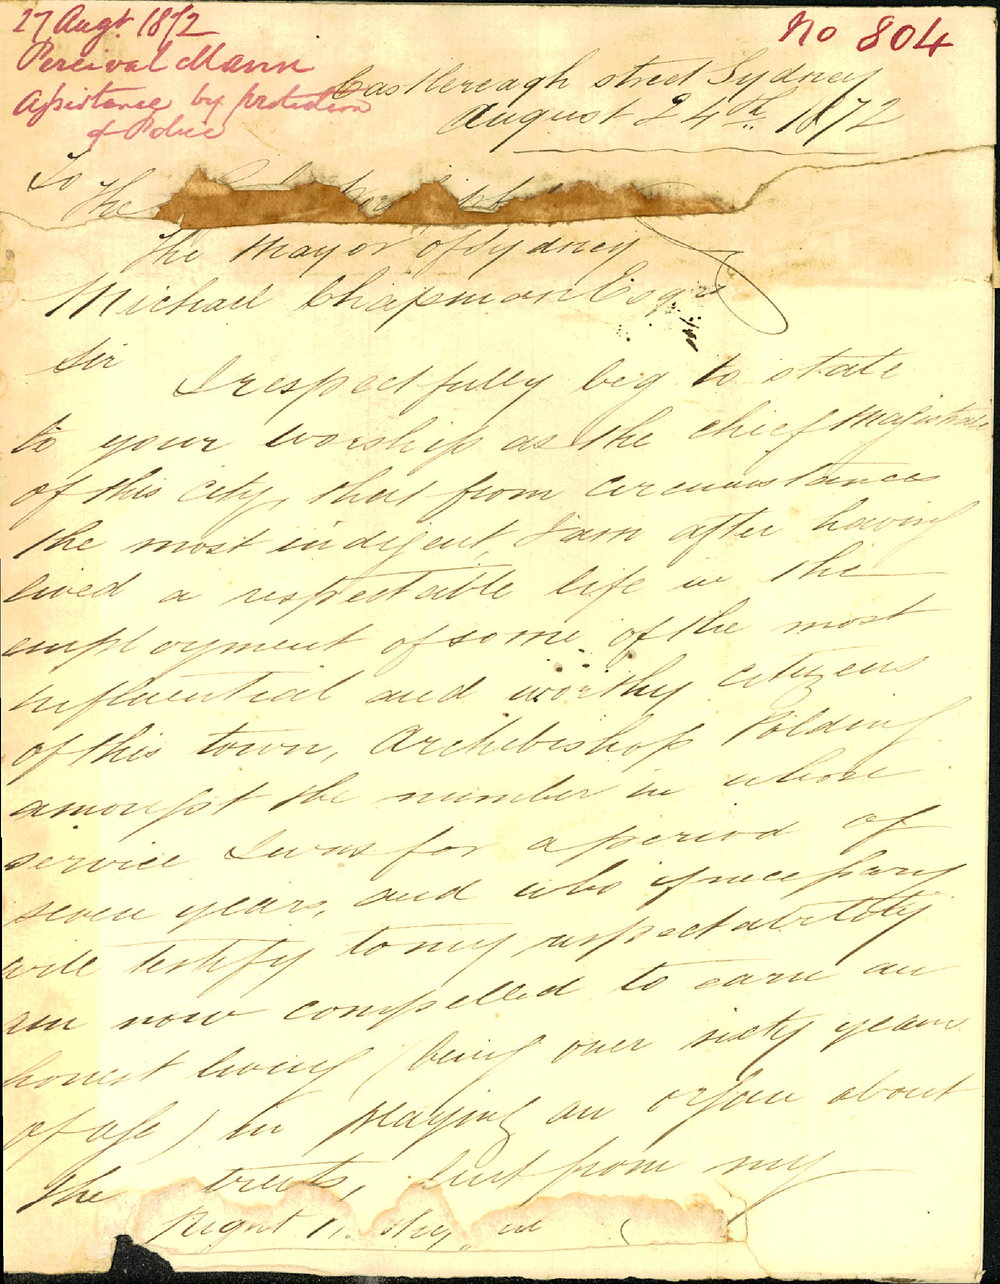 27 Augt. 1872
No 804
Percival Mann
assistance by protection
of Police
Castlereagh street Sydney
August 24th 1872
To
The
The Mayor of Sydney
Michael Chapman Esqr
Sir
I respectfully beg to state
to your worship as the chief Magistrate
of this city, that from circumstances
the most indigent, I am after having
lived a respectable life in the
employment of some of the most
influential and worthy citizens
of this town, Archibishop Polding
amongst the number in whose
service I was for a period of
seven years, and who if necessary
will testify to my respectability
am now compelled to earn an
honest living (being over sixty years
of age) in playing an organ about
the treets, but from my
Right